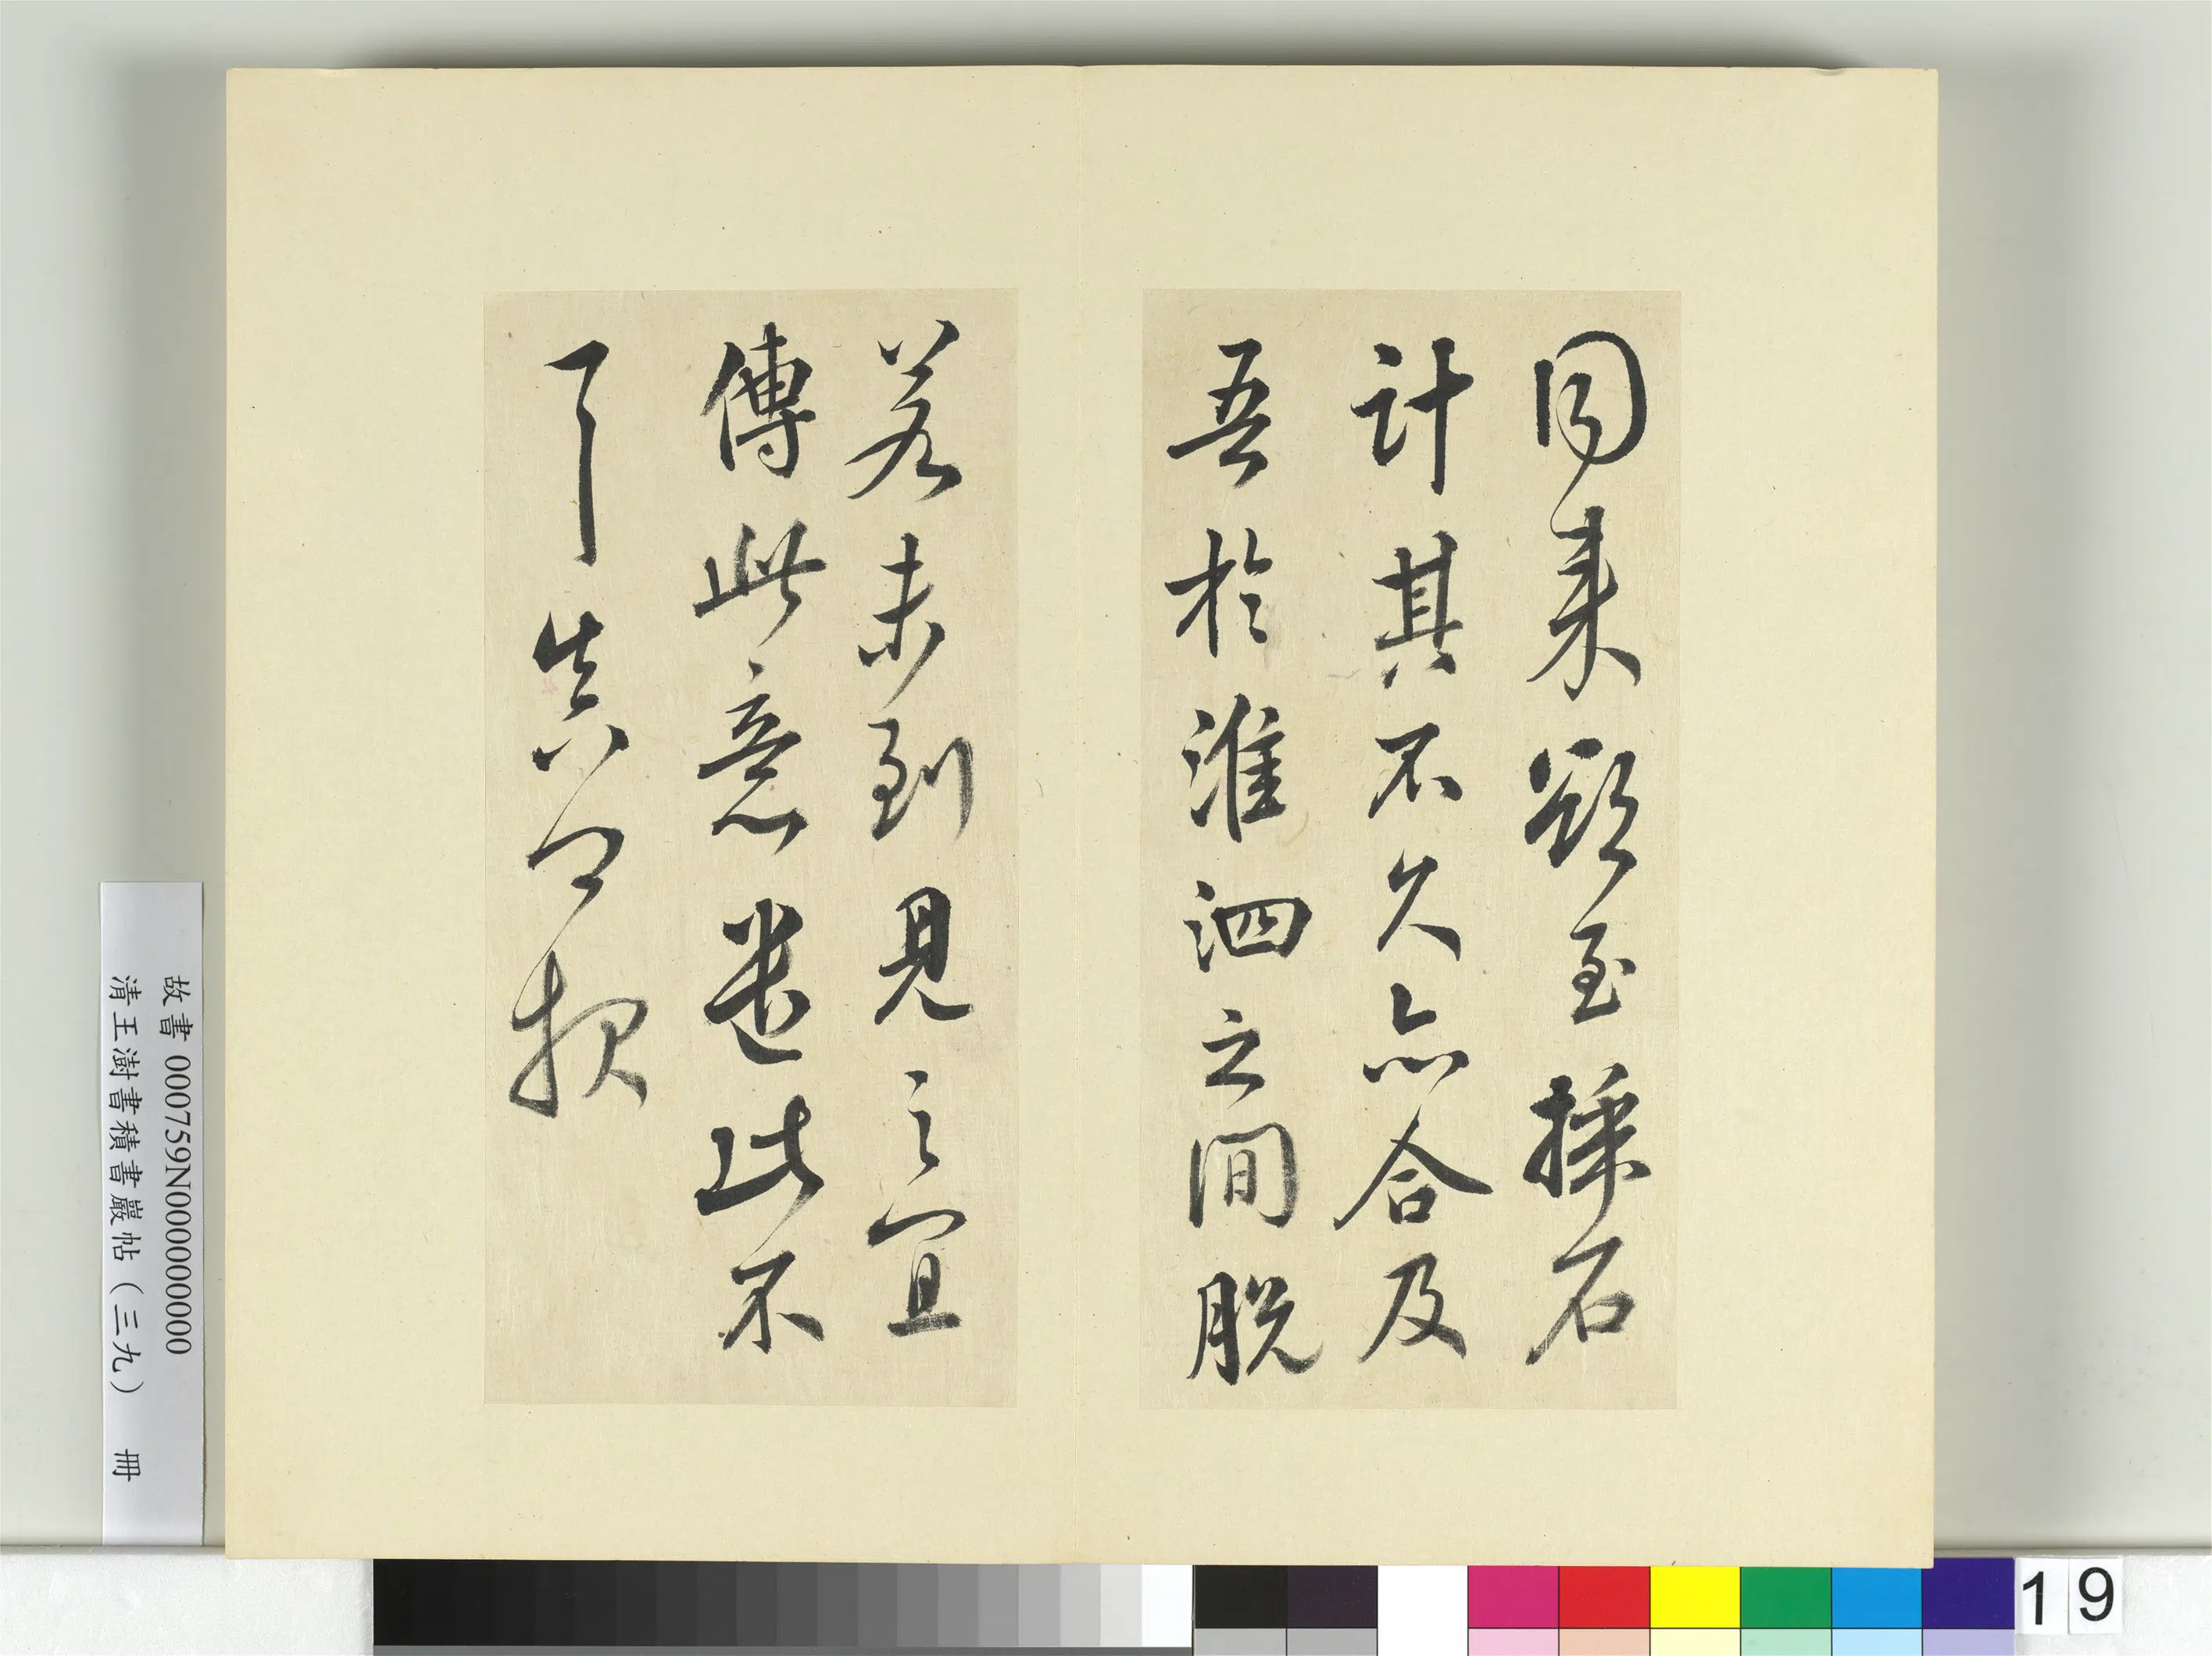 同來至採石
計其不久亦合及
吾於淮泗之間脫
若未到見之宜
傳此意遣此不
了真卿報
故書 000759N000000000
清王澍書積書巖帖（三九） 冊
19